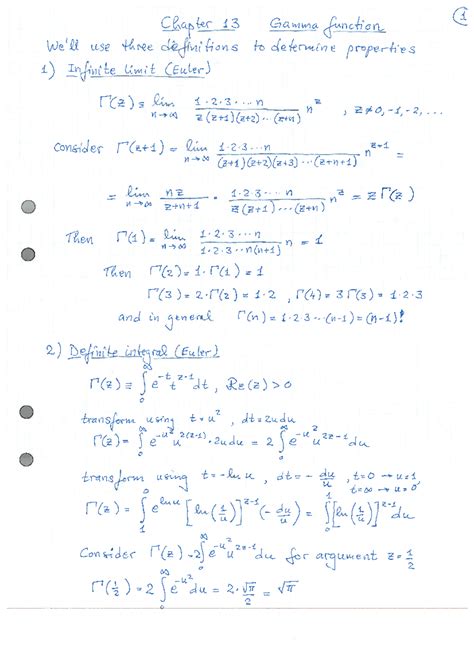 Chapter 13 Gamma function ①
We'll use three definitions to determine properties
1) Infinite limit (Euler)
Γ(z) ≡ lim n→∞ 1·2·3···n / z(z+1)(z+2)···(z+n) n^z , z≠0,-1,-2,...
Consider Γ(z+1) = lim n→∞ 1·2·3···n / (z+1)(z+2)(z+3)···(z+n+1) n^{z+1} =
= lim n→∞ nz / z+n+1 · 1·2·3···n / z(z+1)···(z+n) n^z = zΓ(z)
Then Γ(1) = lim n→∞ 1·2·3···n / 1·2·3···n(n+1) n = 1
Then Γ(2) = 1·Γ(1) = 1
Γ(3) = 2·Γ(2) = 1·2 , Γ(4) = 3Γ(3) = 1·2·3
and in general Γ(n) = 1·2·3···(n-1) = (n-1)!
2) Definite integral (Euler)
Γ(z) ≡ ∫_0^∞ e^{-t} t^{z-1} dt , Re(z) > 0
transform using t=u² , dt=2udu
Γ(z) = ∫_0^∞ e^{-u²} u^{2(z-1)} ·2udu = 2∫_0^∞ e^{-u²} u^{2z-1} du
transform using t=-ln u , dt = -du/u , t=0→u=1
t=∞→u=0
Γ(z) = ∫_1^0 e^{ln u} [ln(1/u)]^{z-1} (-du/u) = ∫_0^1 [ln(1/u)]^{z-1} du
Consider Γ(z) = 2∫_0^∞ e^{-u²} u^{2z-1} du for argument z=1/2
Γ(1/2) = 2∫_0^∞ e^{-u²} du = 2·√π/2 = √π